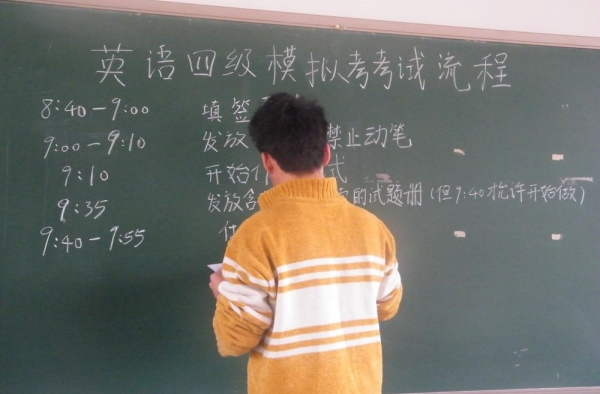 英语四级模拟考考试流程
8:40-9:00 填签
9:00-9:10 发放 禁止动笔
9:10 开始作 式
9:35 发放含 的试题册(但9:40才允许开始做)
9:40-9:55 作